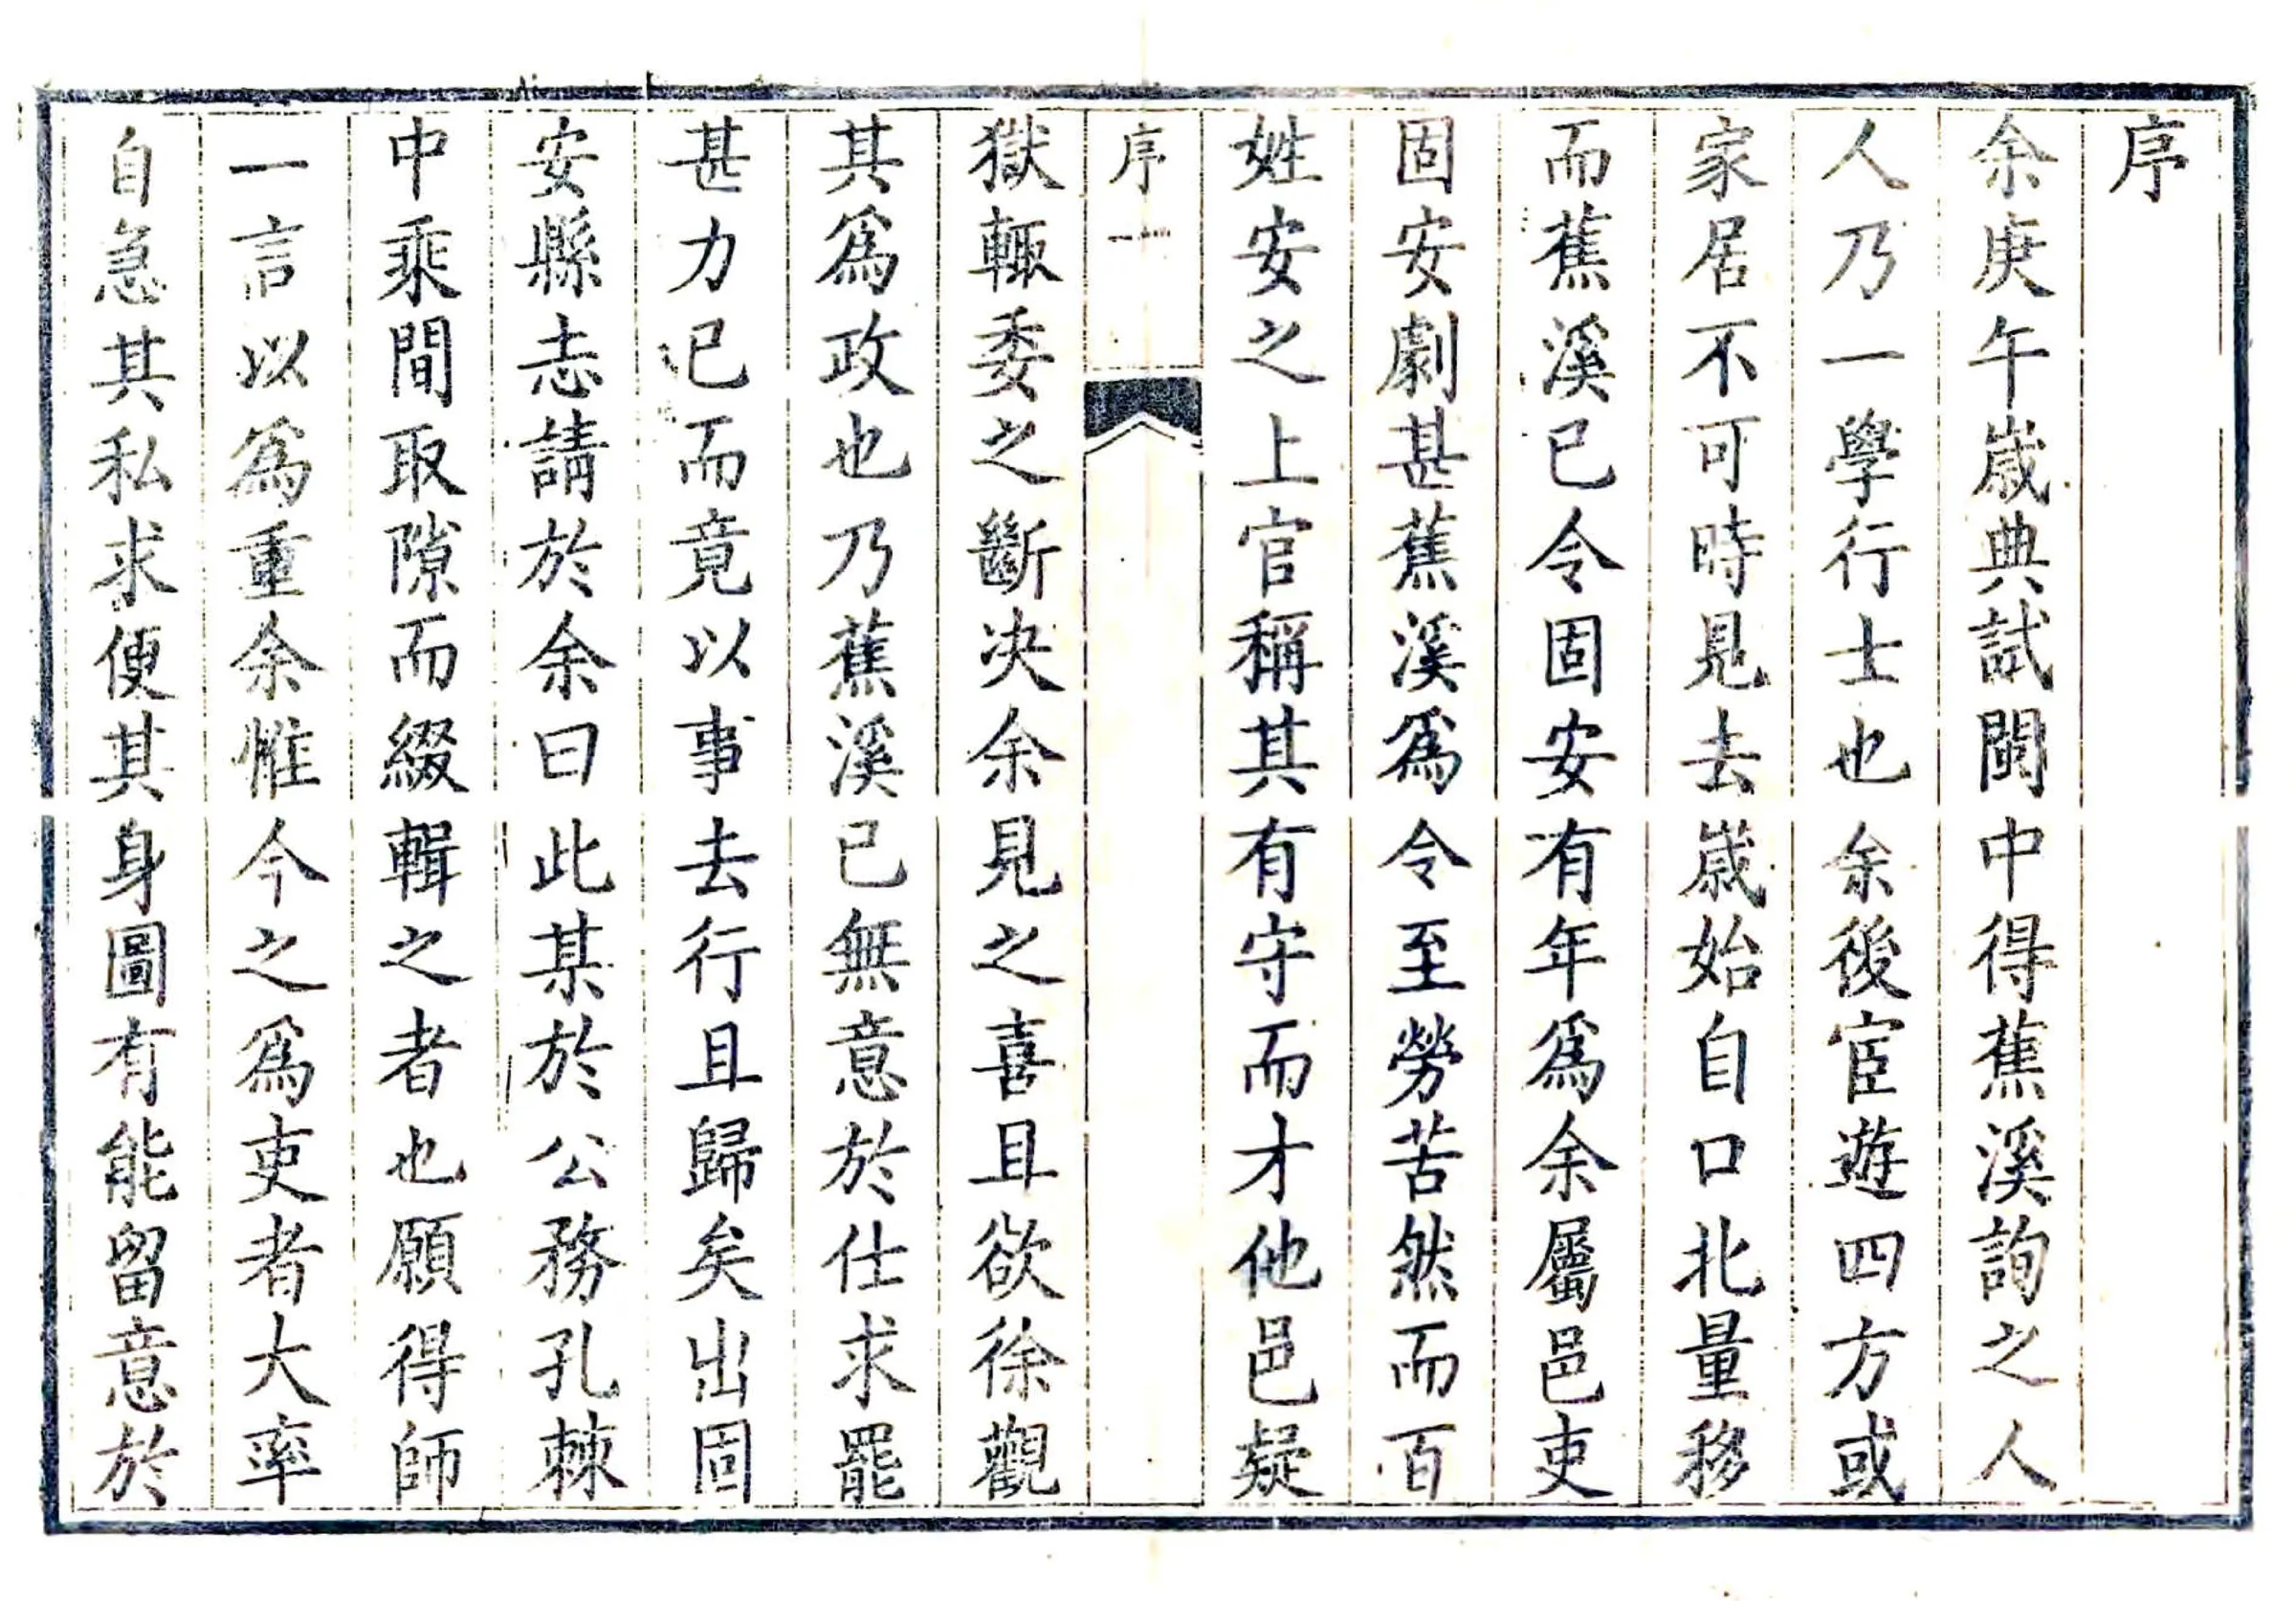 序
余庚午歲典試閩中得蕉溪詢之人
人乃一學行士也余後宦遊四方或
家居不可時見去歲始自口北量移
而蕉溪已令固安有年為余屬邑吏
固安劇甚蕉溪為令至勞苦然而百
姓安之上官稱其有守而才他邑疑
序 一
獄輒委之斷决余見之喜且欲徐觀
其為政也乃蕉溪已無意於仕求罷
甚力已而竟以事去行且歸矣出固
安縣志請於余曰此某於公務孔棘
中乘間取隙而綴輯之者也願得師
一言以為重余惟今之為吏者大率
自急其私求便其身圖有能留意於